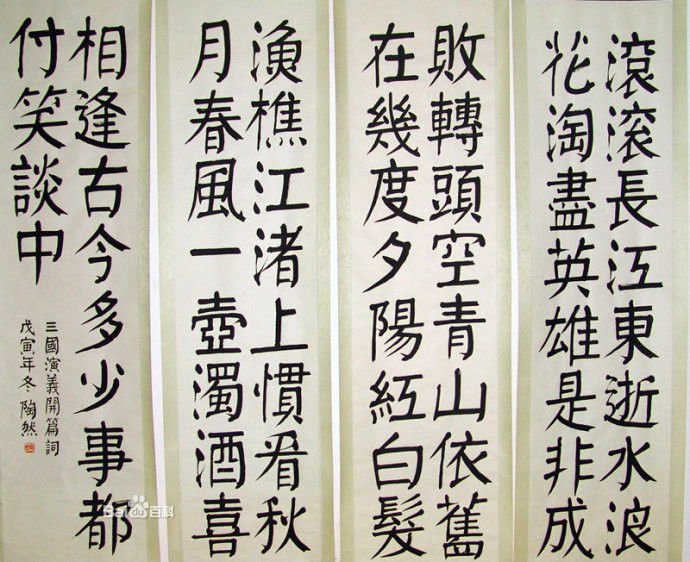 滾滾長江東逝水浪
花淘盡英雄是非成
敗轉頭空青山依舊
在幾度夕陽紅白髮
漁樵江渚上慣看秋
月春風一壺濁酒喜
相逢古今多少事都
付笑談中
三國演義開篇詞
戊寅年冬 陶然
Bai du 百科